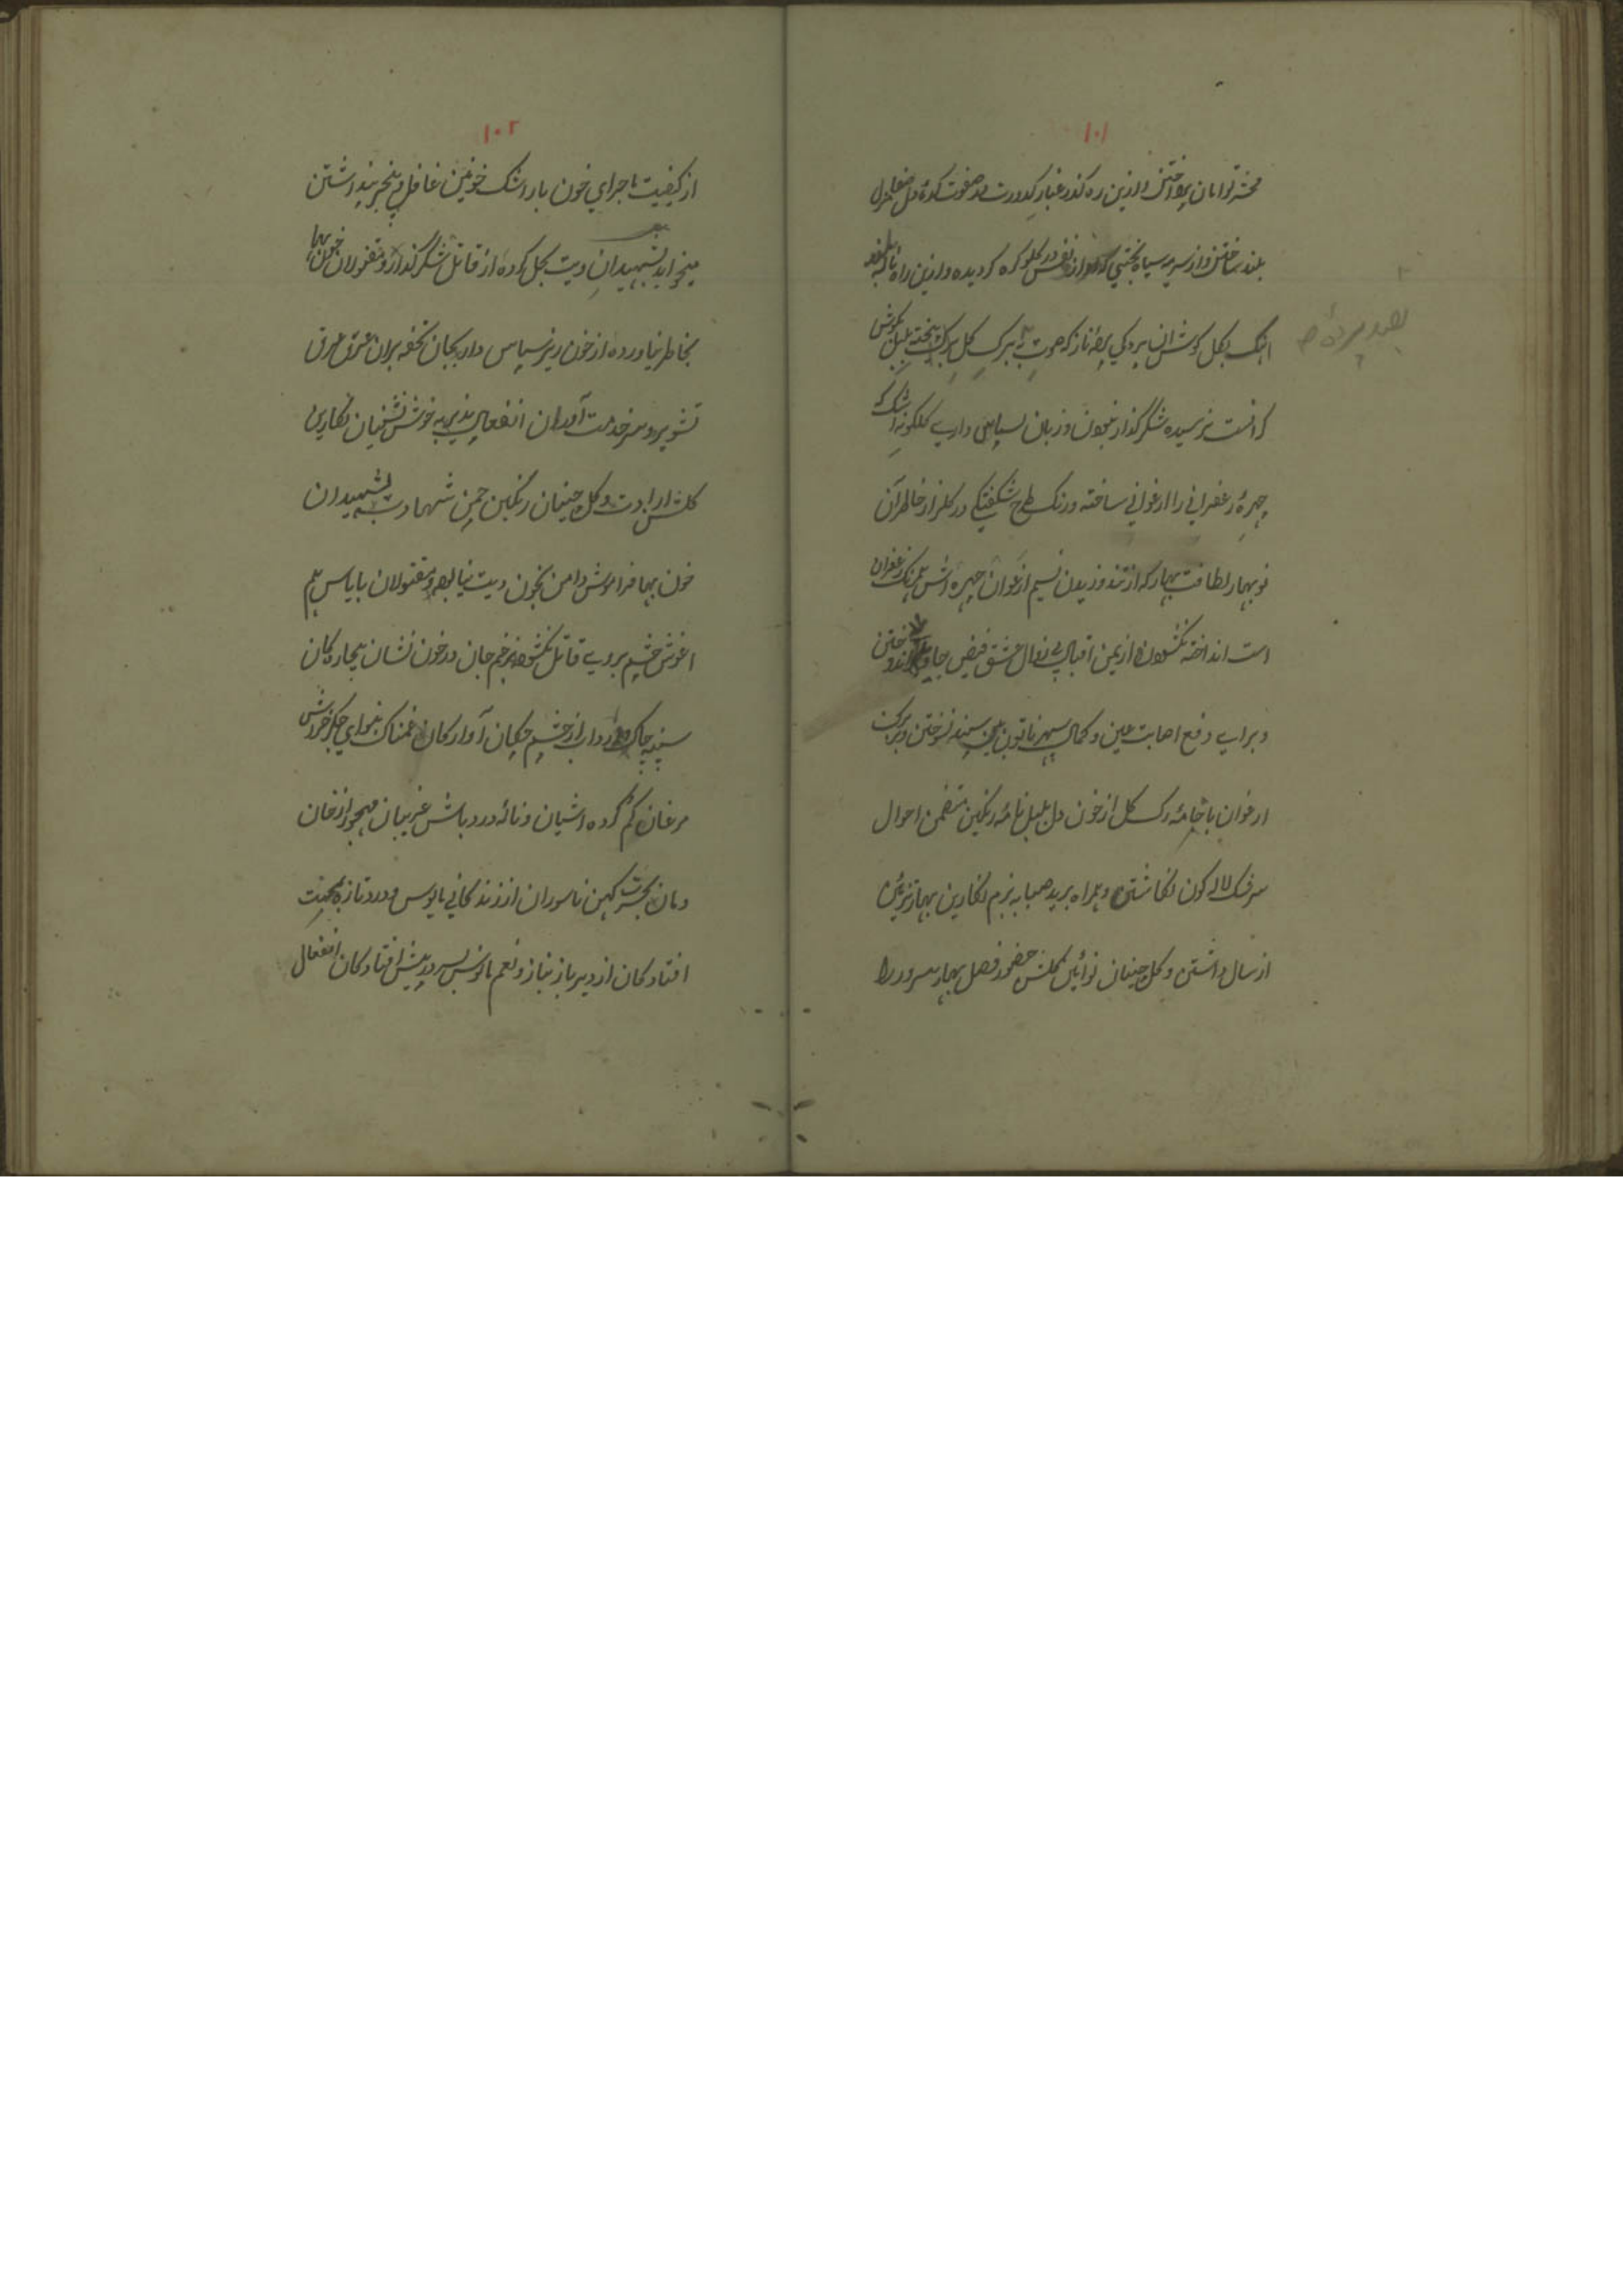 ۱۰۱
محشر توامان پرداختن و ازین ره گذر غبار کدورت در صفوت کدهٔ دل صفا منزل
بلند ساختن و از سرمه سیاه بختی نفس در گلو گره گردیده و ازین راه ناله بلند
آهنگ بگل گوش آن پردگی پردهٔ ناز که صوت برگ گل بلبل بگوش
بصد پردهٔ
گرانست نرسیده شکر گذار بیچون و زبان سپاس داری گلگونه اشک که
چهرهٔ زعفرانی را ارغوانی ساخته و رنگ طرح شگفتگی در گلزار خاطر آن
نوبهار لطافت بهار که از تند وزیدن نسیم ارغوان چهره اش همرنگ زعفران
است انداخته نگشودن و از یمن اقبال بی زوال عشق فیض جاوید اندوختن
و برای دفع اصابت عین و کمال سپهر ناتوان بین سپند نسوختن و بر برگ
ارغوان با خامهٔ رگ گل از خون دل بلبل نامهٔ رنگین متضمن احوال
سرشک لاله گون نگاشتن و همراه برید صبا به بزم نگارین بهار تزئین
ارسال داشتن و گلچینان نوآئین گلشن حضور فصل بهار سرور را
۱۰۲
از کیفیت ماجرای خون بار اشک خونین غافل و بیخبر پنداشتن
میخواهد شهیدان دیت بحل کرده از قاتل شکر گذار و مقتولان خون بها
بخاطر نیاورده از خون ریز سپاس دار بیجان تحفه بران غرق عرق
تشویر و سر خدمت آمدان انفعال پذیر به خوش نشینان نگارین
گلشن ارادت و گل چینان رنگین چمن شهادت به شهیدان
خون بها فراموش دامن بخون دیت نیالوده و مقتولان با یاس هم
آغوش چشم بروی قاتل نگشوده زخم جان در خون نشان بیچارگان
سینه چاک و خوناب از چشم چکان آوارگان غمناک بنوای جگر خراش
مرغان گم کرده آشیان و نالهٔ درد باش غریبان مهجور از خان
ومان بحسرت کهن ناسوران از زندگانی مایوس و درد تازه بمحنت
افتادگان از دیر باز بناز و نعم مانوس بسر در پیش افتادگان انفعال